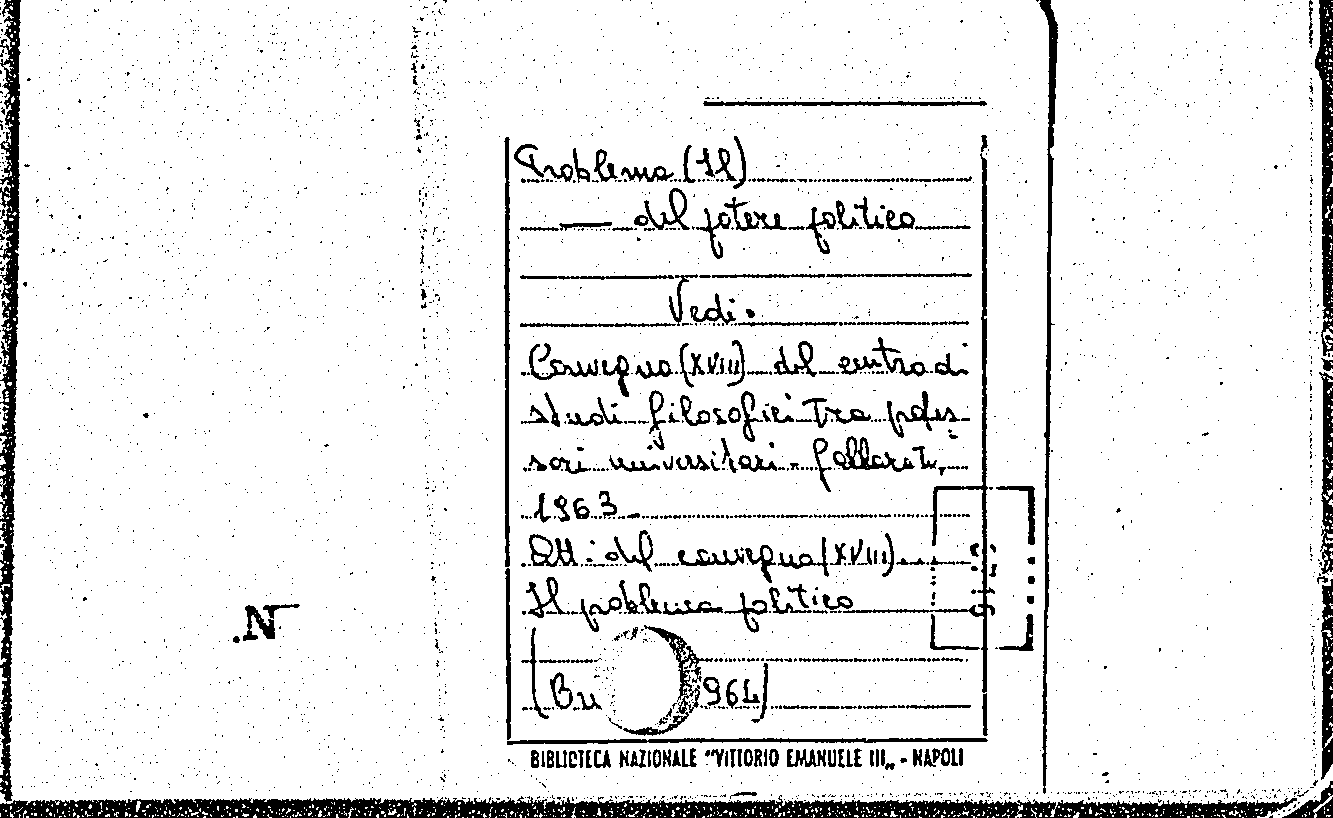 Problema (Il)
— del potere politico
Vedi.
Convegno (XVIII) del centro di
studi filosofici tra profes-
sori universitari - Gallarate,
1963.
Atti del convegno (XVIII)...
Il problema politico
(Bu 964)
.N
BIBLIOTECA NAZIONALE "VITTORIO EMANUELE III„ - NAPOLI